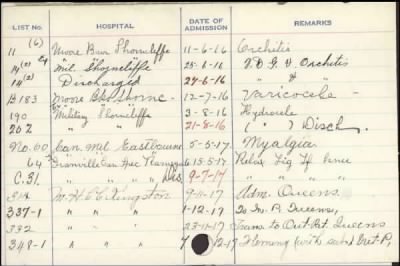 LIST No. HOSPITAL DATE OF ADMISSION REMARKS
(6)
11 Moore Bks Shorncliffe 11-6-16 Orchitis
14(2) Mil. Shorncliffe 25-6-16 V.D.G. & Orchitis
14(2) Discharged 27-6-16 " "
B183 Moore Shornc- 12-7-16 Varicocele -
190 Military Shorncliffe 3-8-16 Hydrocele
202 " " 21-8-16 ( " ) Disch.
No. 60 Can. Mil. Eastbourne 5-5-17 Myalgia.
64 Granville Can. Spec Ramsgate 15-5-17 Knee
C.31. Dis 9-7-17 " " "
314 M.H.C.C. Kingston 9-11-17 Adm. Queens.
337-1 " " " 1-12-17 To In. P. Queens,
332 " " " 23-11-17 Trans. to Out-Pat. Queens
348-1 " " " 12-17 Fleming (with sub) Out-P,